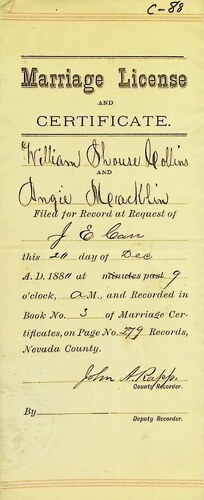 C-88
Marriage License
AND
CERTIFICATE.
William Shouse Collins
AND
Angie Mcracklin
Filed for Record at Request of
J E Carr
this 20 day of Dec
A.D. 1880 at minutes past 9
o'clock, A M., and Recorded in
Book No. 3 of Marriage Cer-
tificates, on Page No. 279 Records,
Nevada County.
John A. Rapp.
County Recorder.
By
Deputy Recorder.